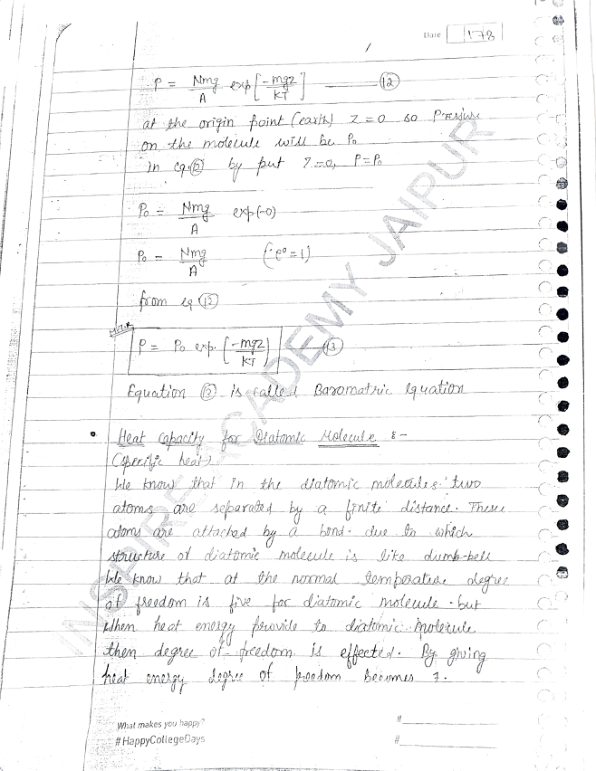 Date 178
P = Nmg/A exp[-mgz/KT] —— (12)
at the origin point (earth) Z=0 so Pressure
on the molecule will be P₀
in eq. (12) by put Z=0, P=P₀
P₀ = Nmg/A exp(-0)
P₀ = Nmg/A (∵e⁰=1)
from eq (12)
P = P₀ exp. [-mgz/KT] —(13)
Equation (13) is called Barometric equation
• Heat Capacity for Diatomic Molecule :-
(specific heat)
We know that in the diatomic molecules two
atoms are separated by a finite distance. These
atoms are attached by a bond. due to which
structure of diatomic molecule is like dumb-bell
We know that at the normal temperature degree
of freedom is five for diatomic molecule. but
when heat energy provide to diatomic molecule
then degree of freedom is effected. By giving
heat energy degree of freedom becomes 7.
INSPIRE ACADEMY JAIPUR
What makes you happy?
#HappyCollegeDays
#
#